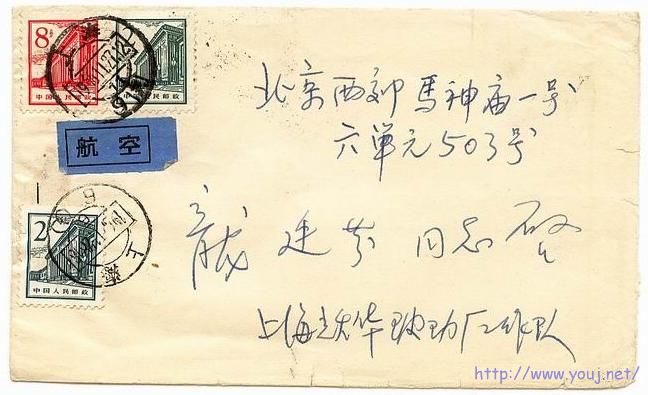 8
中国人民邮政
中国人民邮政
航空
2
中国人民邮政
上海
北京西郊馬神庙一号
六单元503号
龍延芬同志啓
上海耀华玻璃厂工作队
http://www.youj.net/